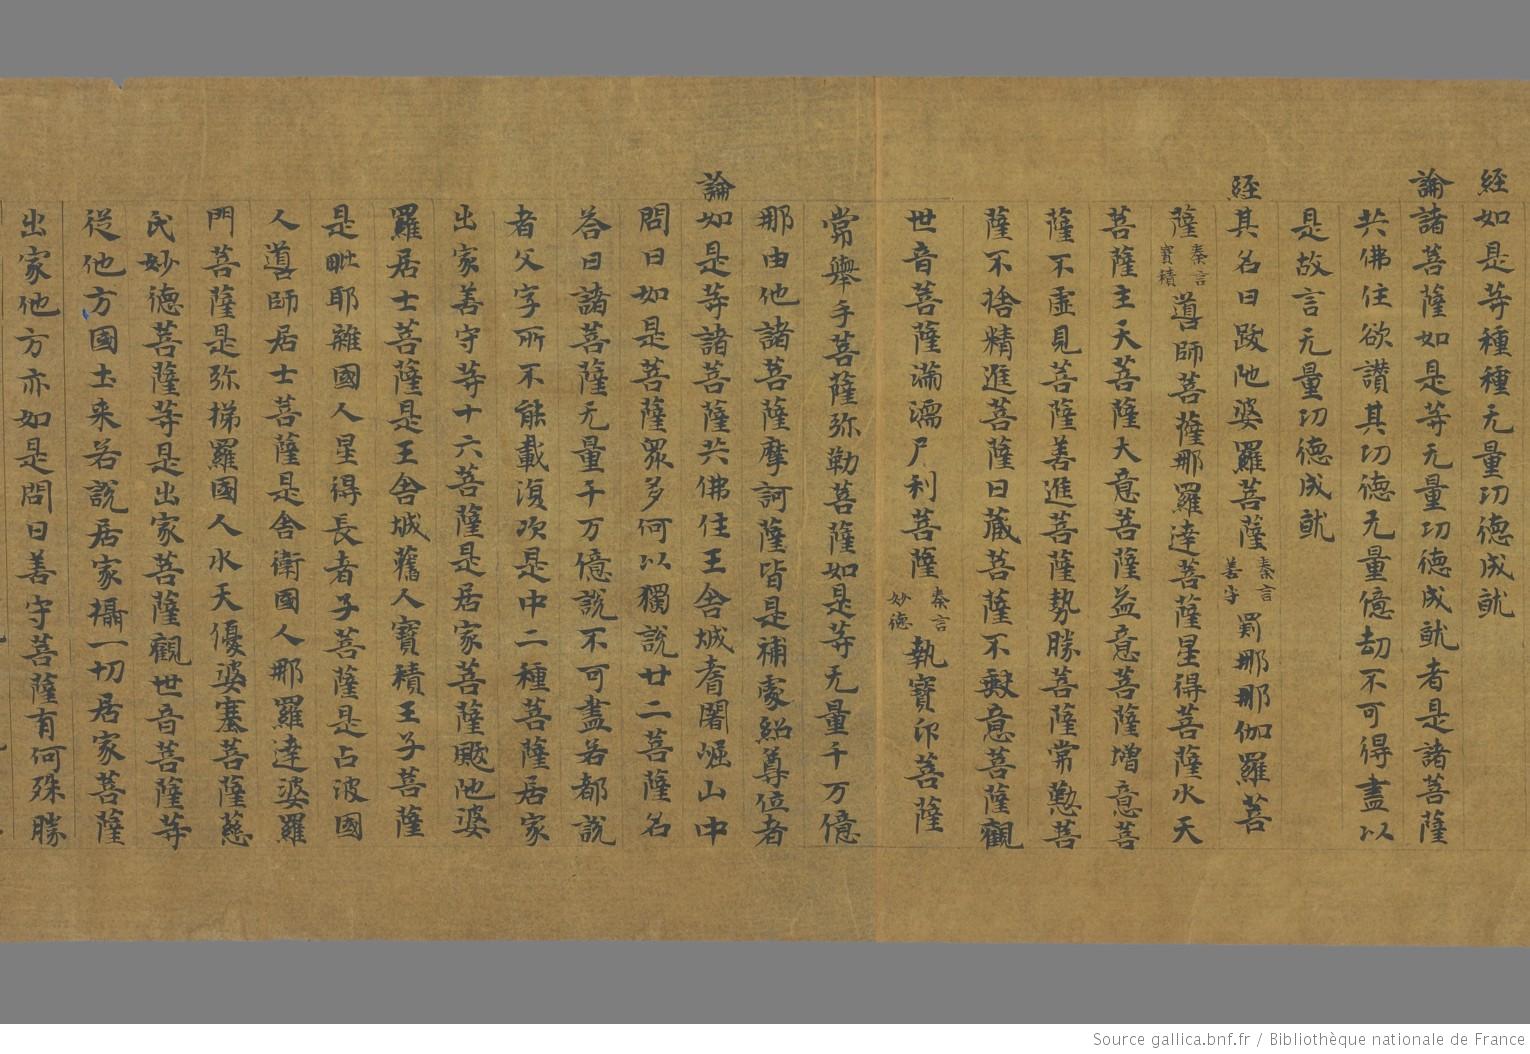 経如是等種種无量功徳成就
論諸菩薩如是等无量功徳成就者是諸菩薩
共佛住欲讃其功徳无量億劫不可得盡以
是故言无量功徳成就
経其名曰颰陁婆羅菩薩秦言善守罽那那伽羅菩
薩秦言寶積導師菩薩那羅達菩薩星得菩薩水天
菩薩主天菩薩大意菩薩益意菩薩增意菩
薩不虛見菩薩善進菩薩勢勝菩薩常懃菩
薩不捨精進菩薩日蔵菩薩不缺意菩薩觀
世音菩薩滿濡尸利菩薩秦言妙徳執寶印菩薩
常舉手菩薩弥勒菩薩如是等无量千万億
那由他諸菩薩摩訶薩皆是補處紹尊位者
論如是等諸菩薩共佛住王舍城耆闍崛山中
問曰如是菩薩眾多何以獨說廿二菩薩名
荅曰諸菩薩无量千万億說不可盡若都說
者父字所不能載復次是中二種菩薩居家
出家善守等十六菩薩是居家菩薩颰他婆
羅居士菩薩是王舍城舊人寶積王子菩薩
是毗耶離國人星得長者子菩薩是占波國
人導師居士菩薩是舍衛國人那羅達婆羅
門菩薩是弥梯羅國人水天優婆塞菩薩慈
氏妙徳菩薩等是出家菩薩觀世音菩薩等
從他方國土来若說居家攝一切居家菩薩
出家他方亦如是問曰善守菩薩有何殊勝
Source gallica.bnf.fr / Bibliothèque nationale de France